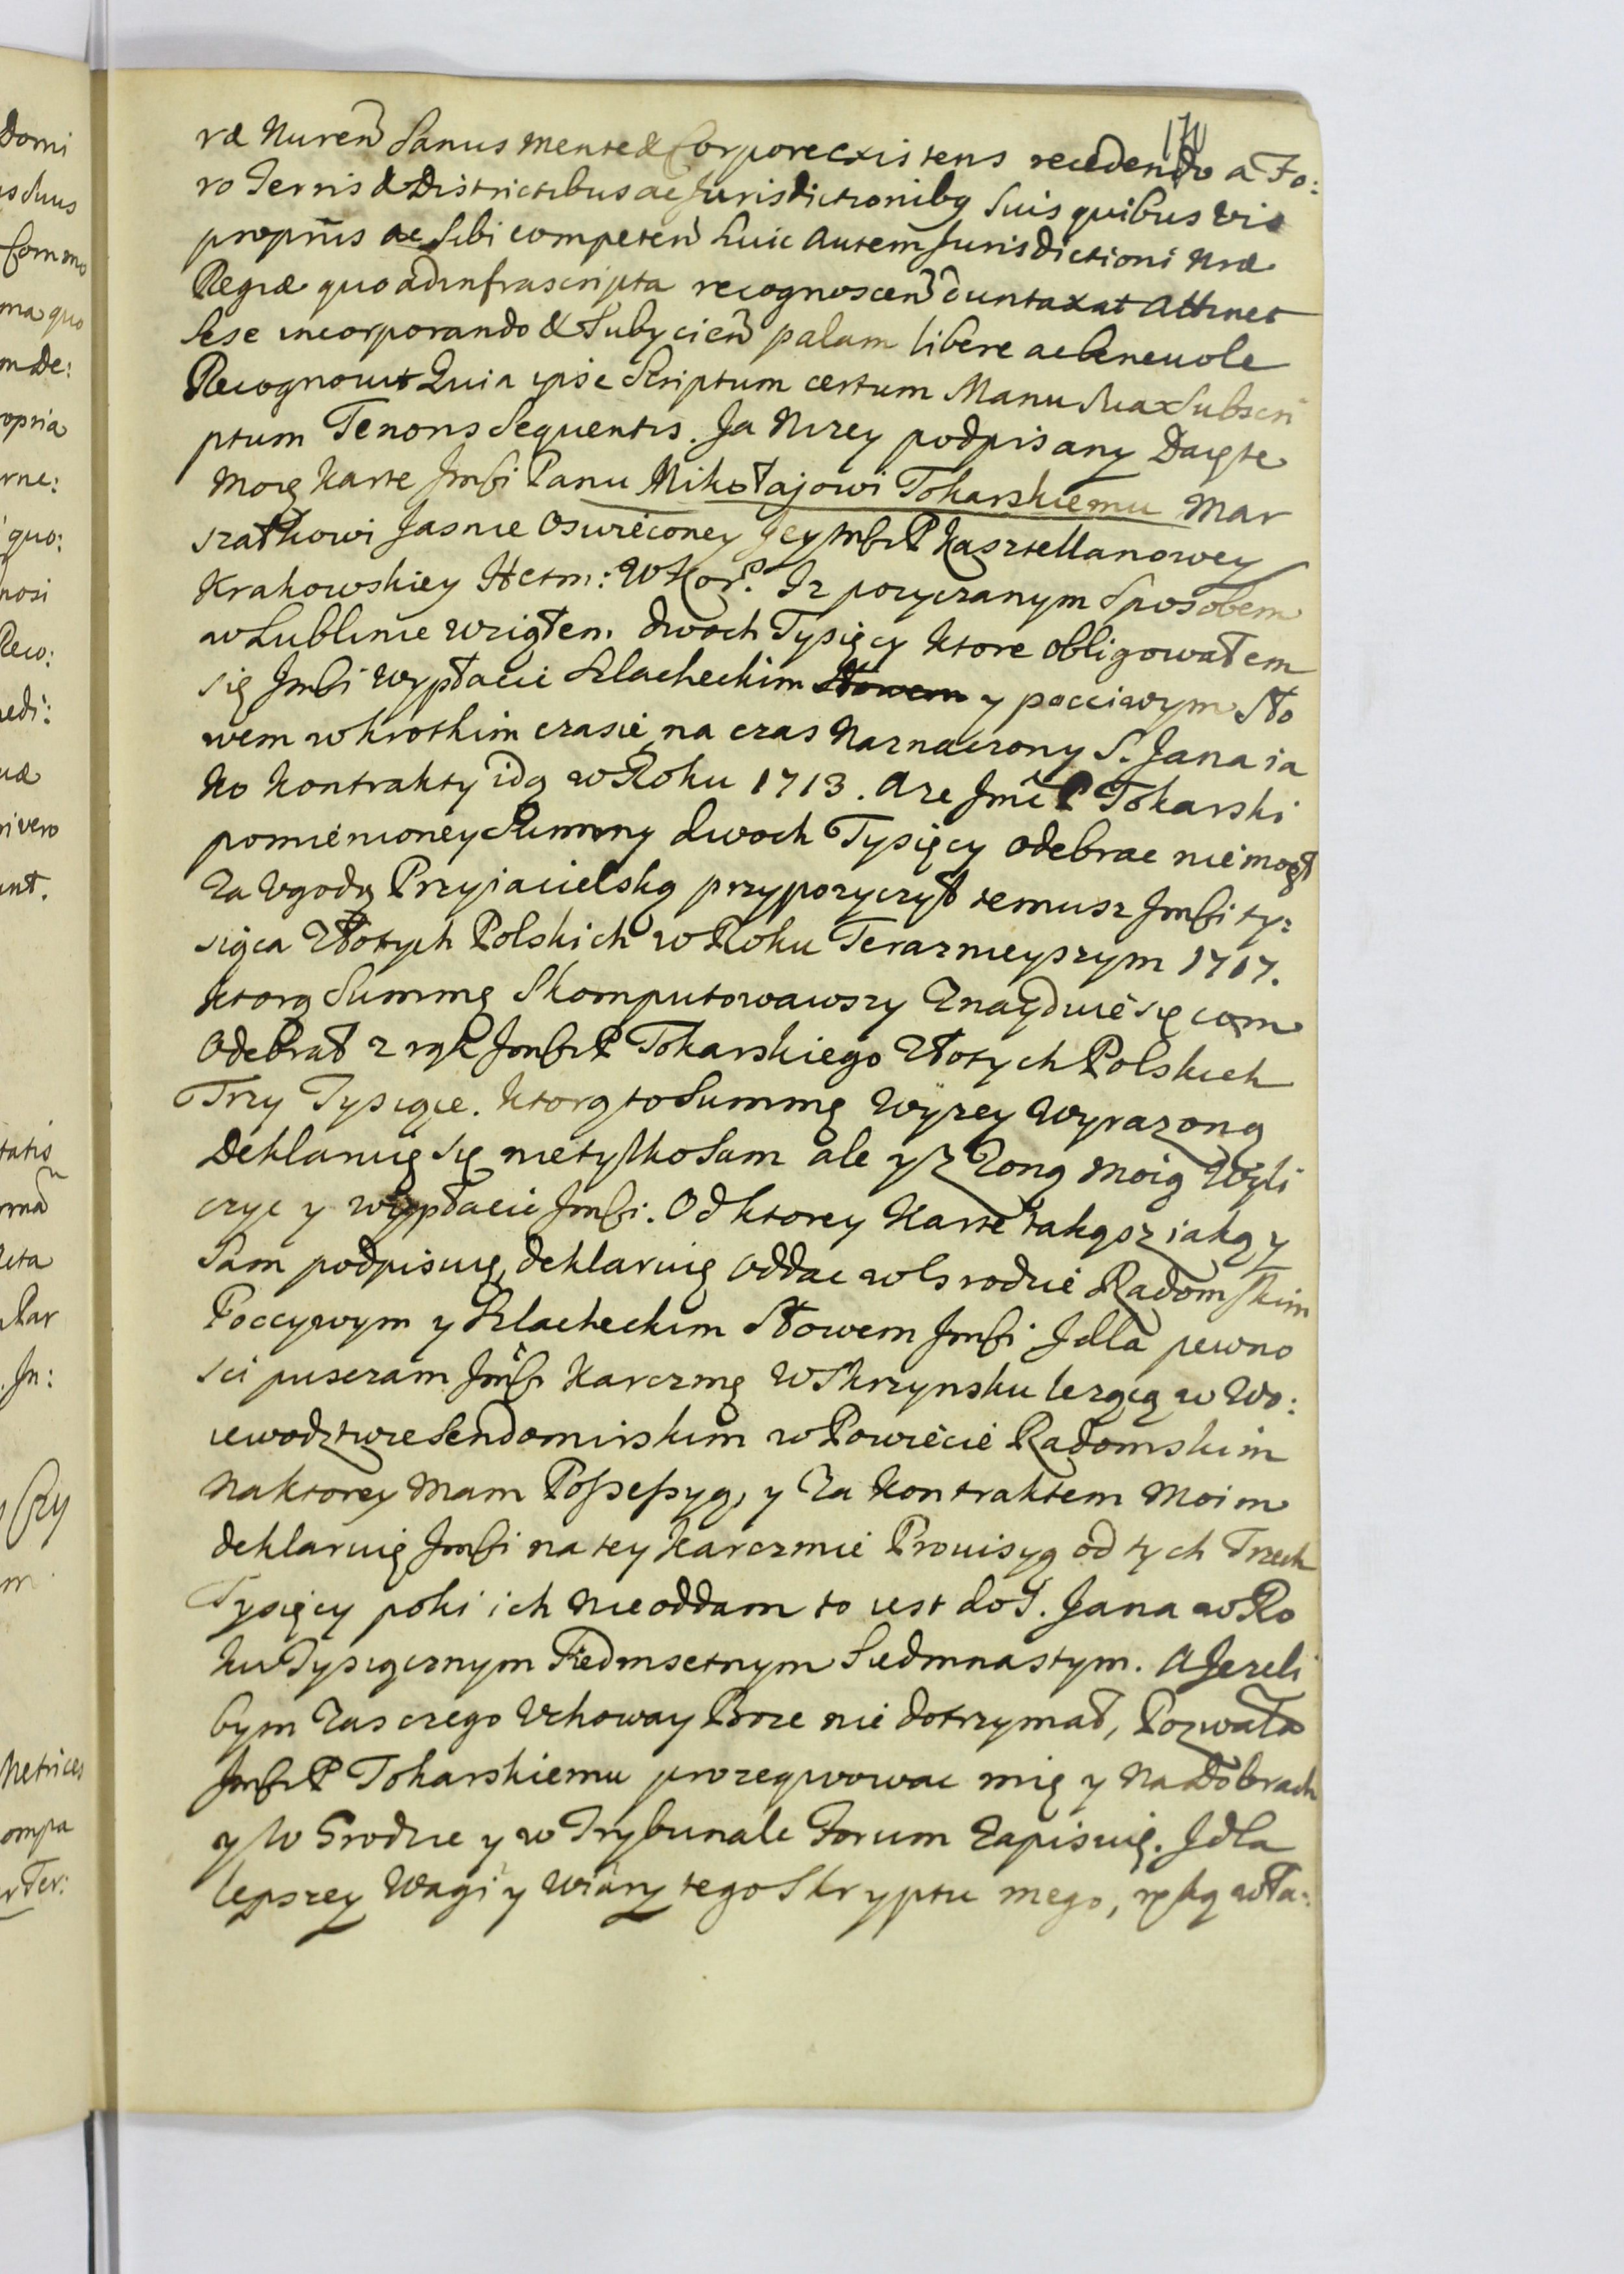 170
ræ Nuren̄ Sanus mente & Corpore existens recedendo a Fo:
ro Terris & Districtibus ac Jurisdictionibq Suis quibus vis
proprijs ac Sibi competen̄ huic Autem Jurisdictioni Nræ
Regiæ quo ad infrascripta recognoscen̄ duntaxat Attinet
Sese incorporando & Subijcien̄ palam libere ac beneuole
Recognouit Quia ipse Scriptum certum Manu Sua Subscri
ptum Tenoris Sequentis. Ja Nizey podpisany Daię te
moię Karte Jmści Panu Mikołajowi Tokarskiemu Mar
szałkowi Jasnie Oswieconey Jey Mści P Kasztellanowey
Krakowskiey Hetm: W Kor. Iz pozyczanym Sposobem
w Lublinie wziąłem dwoch Tysięcy ktore obligowałem
się Jmści wypłacic Szlacheckim Słowem y pocciwym Sło
wem w krotkim czasie, na czas Naznaczony S. Jana ia
ko kontrakty idą w Roku 1713. A ze Jmć P Tokarski
pomienioney Summy dwoch Tysięcy odebrac nie mogł
Za Vgodą Przyjacielską przypozyczył temusz Jmści ty:
siąca Złotych Polskich w Roku Teraznieyszym 1717.
ktorą Summę Skomputowawszy Znayduie się com
Odebrał z rąk Jmści P Tokarskiego Złotych Polskich
Trzy Tysiące. ktorą to Summę Wyzey Wyrazoną
Deklaruię się nie tylko Sam ale y Z Zoną moią Wyli
czyc y wypłacic Jmści. Od ktorey Karte takąsz iaką y
Sam podpisuię, deklaruię oddac w Grodzie Radomskim
Poccywym y Szlacheckim Słowem Jmści I dla pewno
sci puszczam Jmści Karczmę W Skrzynsku lezącą w Wo:
iewodztwie Sendomirskim w Powiecie Radomskim
Na ktorey mam Possessyą, y Za kontraktem Moim
deklaruię Jmści na tey Karczmie Prouisyą od tych Trzech
Tysięcy poki ich nie oddam to iest do S. Jana w Ro
ku Tysiącznym Siedmsetnym Siedmnastym. A Jezeli
bym Zas czego Vchoway Boze nie dotrzymał, Pozwala
Jmści P Tokarskiemu prozeqwowac mię y Na Dobrach
y W Grodzie y w Trybunale Forum Zapisuię. I dla
lepszey Wagi y Wiary tego Skryptu mego, ręką wła:
Domi
Commo
ma quo
m De:
opria
quo:
nosi
Reco:
vero
unt.
Par
Jn:
Metrices
ompa
Ter: